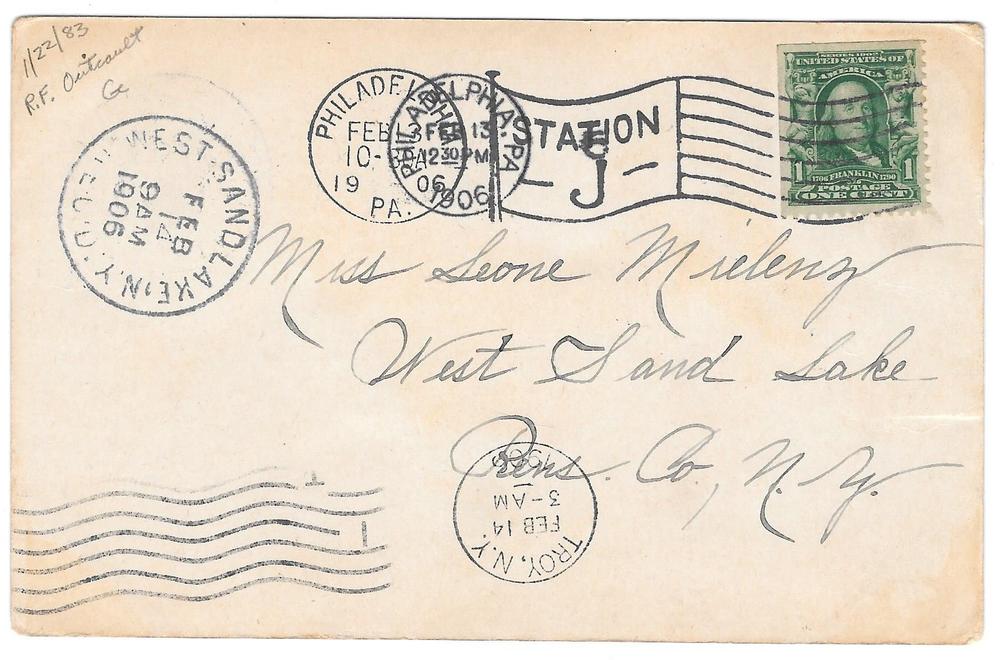 1/22/83
R.F. Outcault
PHILADELPHIA
FEB 13
10-
19 06
PA.
PHILADELPHIA, PA.
FEB 13
12 30 PM
1906
STATION
J
SERIES 1902
UNITED STATES OF
AMERICA
1 1
1706 FRANKLIN 1790
POSTAGE
ONE CENT
WEST-SAND LAKE, N.Y.
FEB
14
9 AM
1906
REC'D.
Miss Leone Mielenz
West Sand Lake
Rens. Co., N.Y.
TROY, N.Y.
FEB 14
3-AM
1906
1